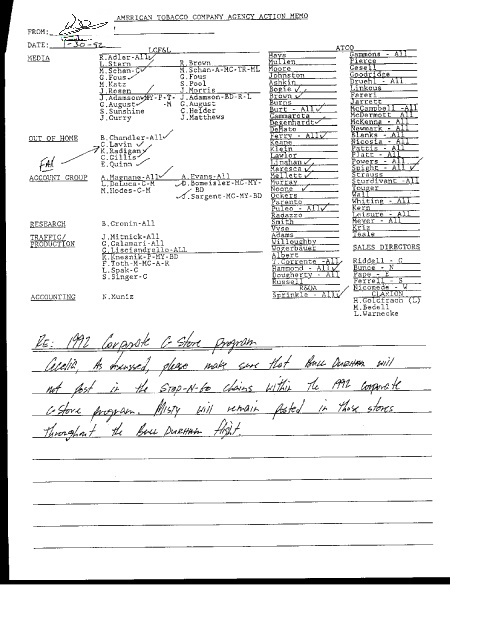 AMERICAN TOBACCO COMPANY AGENCY ACTION MEMO
FROM:
DATE: 1-30-92
LCF&L
ATCO
MEDIA
R.Adler-All
L.Stern R.Brown
M.Schan-C M.Schan-A-MC-TR-ML
G.Fous G.Fous
M.Katz S.Pool
J.Rosen J.Morris
J.Adamson-MY-P-T- J.Adamson-BD-R-L
C.August -M G.August
S.Sunshine C.Heider
J.Curry J.Matthews
OUT OF HOME B.Chandler-All
C.Lavin
K.Radigan
C.Gillis
E.Quinn
FAX
ACCOUNT GROUP A.Magnane-All A.Evans-All
L.DeLuca-C-M D.Bomeisler-MC-MY-
M.Hodes-C-M BD
J.Sargent-MC-MY-BD
RESEARCH B.Cronin-All
TRAFFIC/ J.Mitnick-All
PRODUCTION G.Calamari-All
G.Lisciandrello-ALL
R.Knesnik-P-MY-BD
F.Toth-M-MC-A-R
L.Spak-C
S.Singer-C
ACCOUNTING K.Kuniz
Hays
Mullen
Moore
Johnston
Ashkin
Bogie
Brown
Burns
Burt - All
Cammarota
Degenhardt
DeMato
Ferry - All
Keane
Klein
Lawlor
Linehan
Maresca
Mellett
Murray
Neone
Ockers
Parento
Puleo - All
Ragazzo
Smith
Vyse
Adams
Willoughby
Wogerbauer
Albert
T.Corrente -All
Hammond - All
Dougherty - All
Russell
R&QA
Sprinkle - All
Gammons - All
Pierce
Gesell
Goodridge
Druehl - All
Linkous
Pareri
Jarrett
McCampbell -All
McDermott All
McKenna - All
Newmark - All
Klanks - All
Nicosta - All
Pattis - All
Platt - All
Powers - All
Speight - All
Strauss
Sturdivant -All
Touger
Wall
Whiting - All
Kern
Leisure - All
Meyer - All
Kriz
Teale
SALES DIRECTORS
Riddell - C
Bunce - N
Pape - E
Ferrell - S
Nicomede - W
CLARION
H.Goldfraon (L)
M.Bedell
L.Warnecke
RE: 1992 Corporate C-Store program
Cecelia, As discussed, please make sure that Bull Durham will
not post in the Stop-N-Go chains within the 1992 corporate
C-Store program. Misty will remain posted in those stores
throughout the Bull Durham flight.